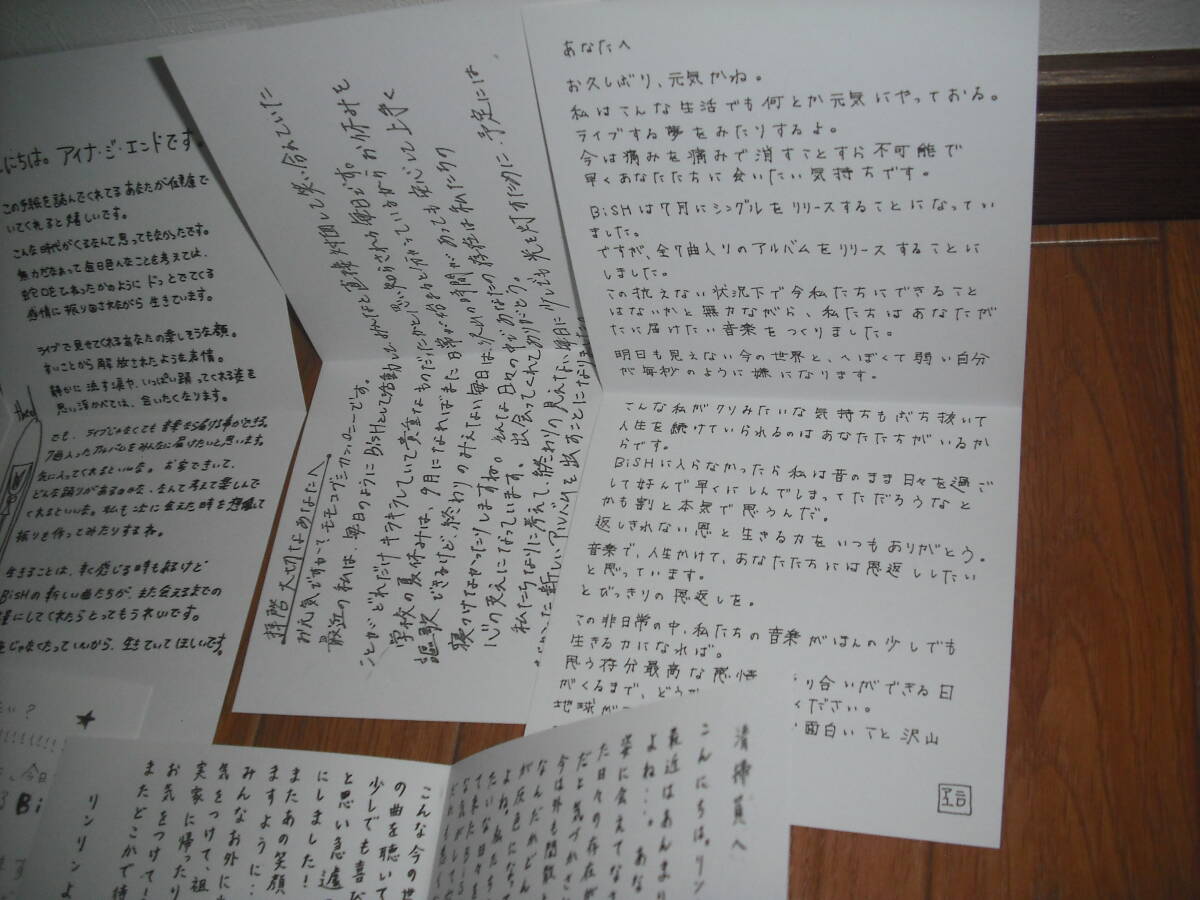 にちは。アイナ・ジ・エンドです。
この手紙を読んでくれてるあなたが健康で
いてくれると嬉しいです。
こんな時代がくるなんて思ってもなかったです。
無力だなぁって毎日色んなことを考えては、
蛇口をひねったかのようにドッとでてくる
感情に振り回されながら生きています。
ライブで見せてくれるあなたの楽しそうな顔。
すいことから解放されたような表情。
静かに流す涙や、いっぱい踊ってくれる姿を
思い浮かべては、会いたくなります。
でも、ライブじゃなくても音楽なら届ける事ができる。
7曲入ったアルバムをみんなに届けたいと思います。
気に入ってくれるといいな。お家できいて、
どんな踊りがあるのかな、なんて考えて楽しんで
くれるといいな。私も次に会えた時を想像して
振りを作ってみたりするね。
生きることは、辛く感じる時も続けど
BiSHの新しい曲たちが、また会えるまでの
にしてくれたらとってもうれしいです。
じゃなくたっていいから、生きていてほしいです。
拝啓 大切なあなたへ。
お元気ですか？モモコグミカンパニーです。
最近の私は、毎日のようにBiSHとして活動し、みんなと直接対面して笑い合えていた
ことがどれだけキラキラしていて貴重なものだったかと思い知らされる毎日です。
学校の夏休みは、9月になればまた日常が始まると分かっているから お休みを
謳歌できるけど、終わりのみえない毎日は、いくら時間があっても 虚しくて 上手く
寝つけなかったりしますね。そんな日々の中であなたの存在は私たちの
心の支えになっています。出会ってくれてありがとう。
私たちなりに考えて、終わりの見えない毎日に少しでも光を灯すために、予定には
なかった新しいアルバムを出すことになりました
あなたへ
お久しぶり、元気かね。
私はこんな生活でも何とか元気にやっておる。
ライブする夢をみたりするよ。
今は痛みを痛みで消すことすら不可能で
早くあなたたちに会いたい気持ちです。
BiSHは7月にシングルをリリースすることになってい
ました。
ですが、全7曲入りのアルバムをリリースすることに
しました。
この抗えない状況下で今私たちにできること
はないかと無力ながら、私たちはあなたが
たに届けたい音楽をつくりました。
明日も見えない今の世界と、へぼくて弱い自分
が毎秒のように嫌になります。
こんな私がクソみたいな気持ちもぶち抜いて
人生を続けていられるのはあなたたちがいるか
らです。
BiSHに入らなかったら私は昔のまま日々を過ご
して好んで早くにしんでしまってただろうなと
かも割と本気で思うんだ。
返しきれない恩と生きる力をいつもありがとう。
音楽で、人生かけて、あなたたちには恩返ししたい
と思っています。
とびっきりの恩返しを。
この非日常の中、私たちの音楽がほんの少しでも
生きる力になれば。
思う存分最高な感情
り合いができる日
がくるまで、どうか
ください。
地球が
面白いこと沢山
清掃員へ
こんにちは。リン
最近はあんまり
よね…。あな
姿に会えてなさ
た日々の存在が
だと気づかさ
今は外も閑散
なんだかめどん
が灰色になっ
こんな今の世
の曲を聴いて
少しでも喜び
と思い急遽
にしました！
またあの笑顔
ますように…
みんなお外に
気をつけて、祖
実家に帰ったり
お気をつけて！
またどこかで待
リンリンよ